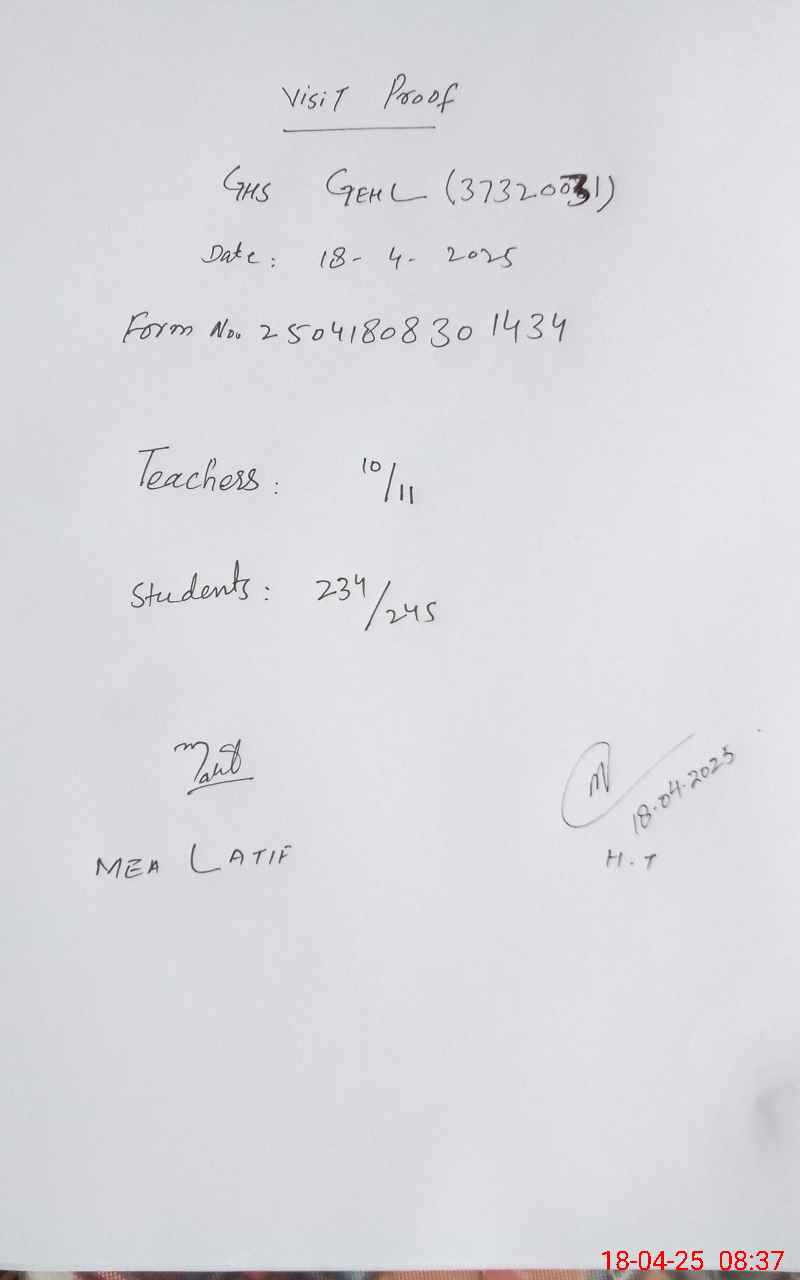 Visit Proof
GHS GEHL (37320031)
Date: 18-4-2025
Form No. 2504180830 1434
Teachers: 10/11
Students: 234/245
18.04.2025
MEA LATIF
H.T
18-04-25 08:37